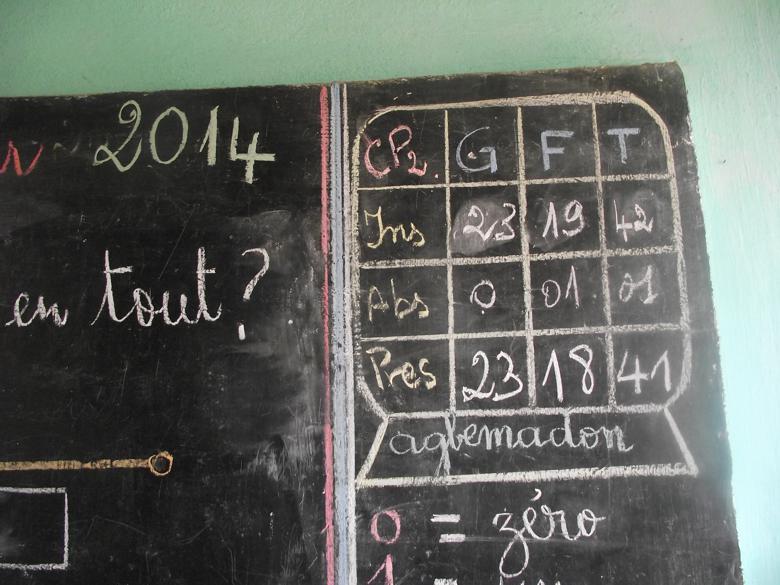 2014
en tout ?
CP2. G F T
Ins 23 19 42
Abs 0 01 01
Pres 23 18 41
agbemadon
0 = zéro
1 =